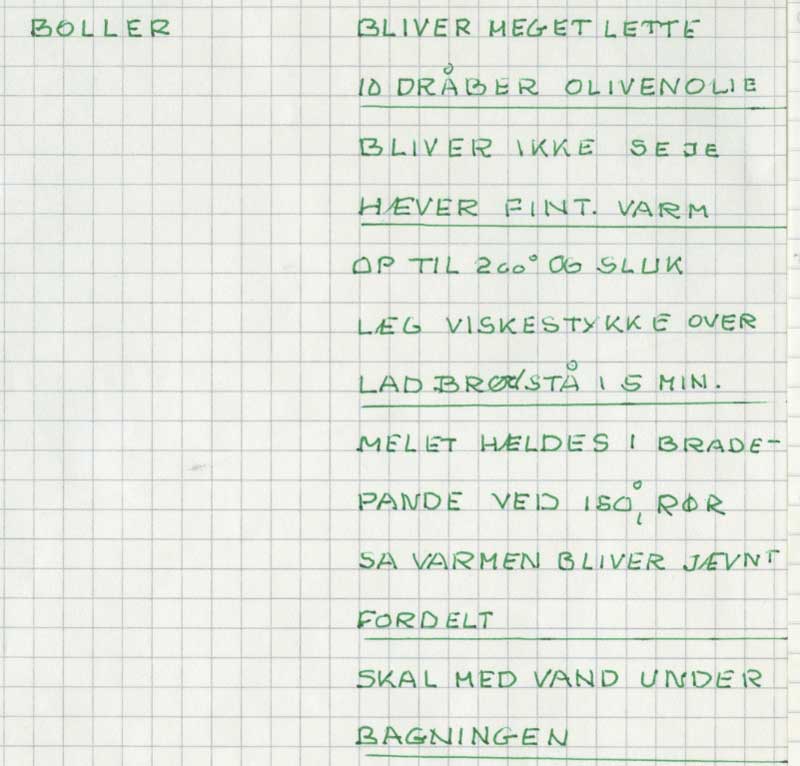 BOLLER BLIVER MEGET LETTE
10 DRÅBER OLIVENOLIE
BLIVER IKKE SEJE
HÆVER FINT. VARM
OP TIL 200° OG SLUK
LÆG VISKESTYKKE OVER
LAD BRØD STÅ I 5 MIN.
MELET HÆLDES I BRADE-
PANDE VED 150°, RØR
SA VARMEN BLIVER JÆVNT
FORDELT
SKAL MED VAND UNDER
BAGNINGEN